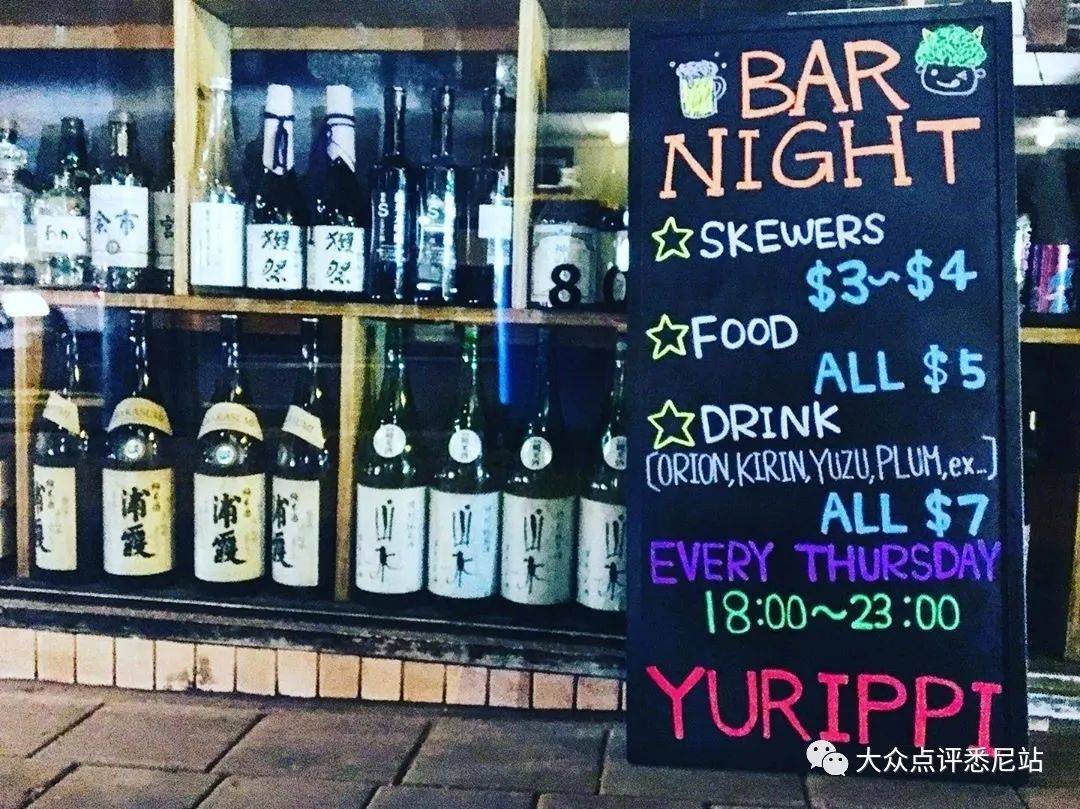 BAR
NIGHT
SKEWERS
$3~$4
FOOD
ALL $5
DRINK
(ORION,KIRIN,YUZU,PLUM,ex...)
ALL $7
EVERY THURSDAY
18:00~23:00
YURIPPI
余市
宮
獺祭
獺祭
S
8
浦霞
浦霞
浦霞
山
山
大众点评悉尼站